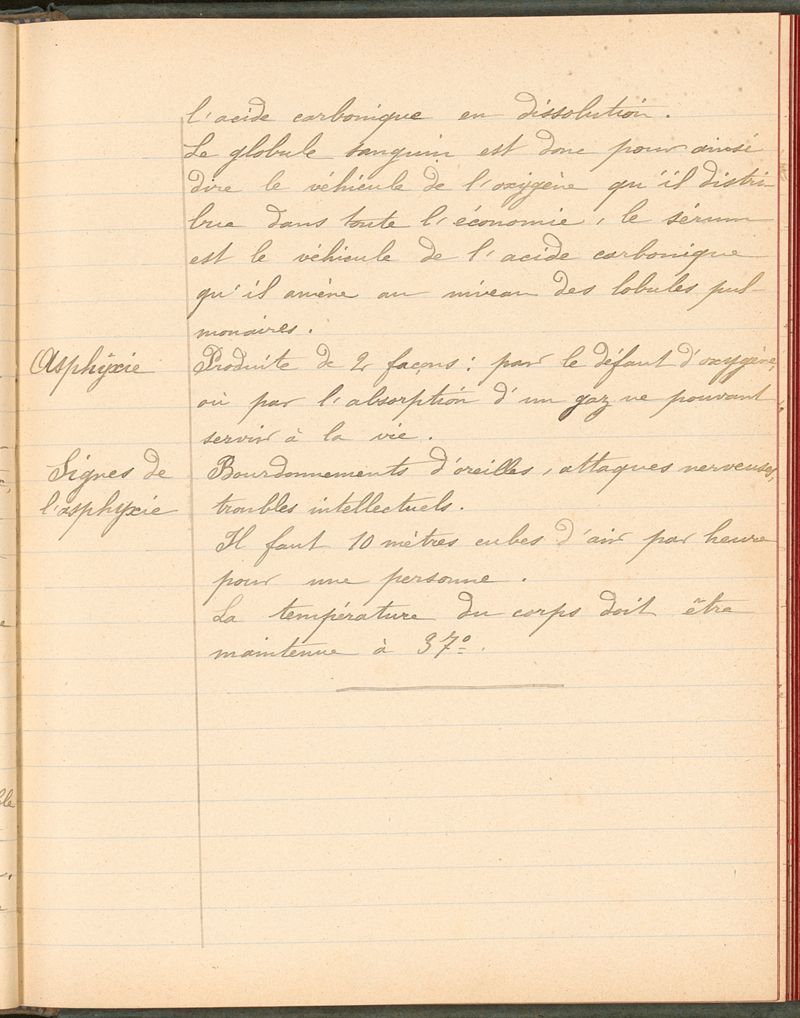 l'acide carbonique en dissolution.
Le globule sanguin est donc pour ainsi
dire le véhicule de l'oxygène qu'il distri-
bue dans toute l'économie, le sérum
est le véhicule de l'acide carbonique
qu'il amène au niveau des lobules pul-
monaires.
Asphyxie Produite de 2 façons : par le défaut d'oxygène,
où par l'absorption d'un gaz ne pouvant
servir à la vie.
Signes de Bourdonnements d'oreilles, attaques nerveuses,
l'asphyxie troubles intellectuels.
Il faut 10 mètres cubes d'air par heure
pour une personne.
La température du corps doit être
maintenue à 37º.
ble